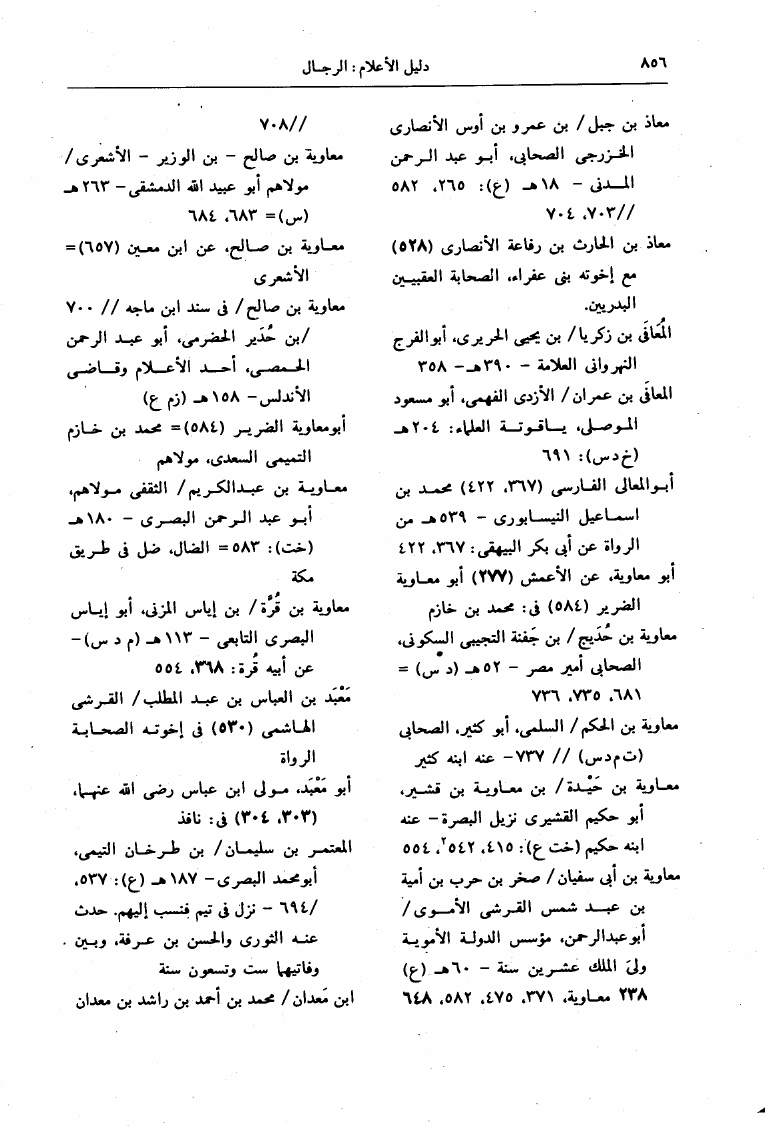 ٨٥٦
دليل الأعلام : الرجـال
معاذ بن جبل / بن عمرو بن أوس الأنصارى
الخـزرجى الصحابى، أبـو عبد الـرحمن
المـدنى - ١٨هـ (ع): ٢٦٥، ٥٨٢
//٧٠٣، ٧٠٤
معاذ بن الحارث بن رفاعة الأنصارى (٥٢٨)
مع إخوته بنى عفراء، الصحابة العقبيـين
البدريين.
المُعَافَى بن زكريا/ بن يحيى الحريرى، أبوالفرج
النهروانى العلامة - ٣٩٠هـ- ٣٥٨
المعافَى بن عمران/ الأزدى الفهمى، أبو مسعود
المـوصلى، يـاقـوتـة العلماء: ٢٠٤هـ
(خ د س): ٦٩١
أبـوالمعالى الفـارسى (٣٦٧، ٤٢٢) محمـد بن
اسمـاعيل النيسـابورى - ٥٣٩هـ من
الرواة عن أبى بكر البيهقى: ٣٦٧، ٤٢٢
أبو معاوية، عن الأعمش (٢٧٧) أبو معـاوية
الضرير (٥٨٤) فى: محمد بن خازم
معاوية بن حُدَيج/ بن جَفنة التجيبى السكونى،
الصحابى أمير مصر - ٥٢هـ (د س) =
٦٨١، ٧٣٥، ٧٣٦
معاوية بن الحكم/ السلمى، أبو كثير، الصحابى
(ت م د س) // ٧٣٧- عنه ابنه كثير
معـاوية بن حَيْـدة/ بن معـاويـة بن قشـير،
أبو حكيم القشيرى نزيل البصرة- عنه
ابنه حكيم (خت ع): ٤١٥، ٥٤٢٢، ٥٥٤
معاوية بن أبى سفيان/ صخر بن حرب بن أمية
بن عبـد شمس القـرشى الأمـوى/
أبوعبدالرحمن، مؤسس الدولـة الأمويـة
ولىَ الملك عشـرين سنة - ٦٠هـ (ع)
٢٣٨ معاوية، ٣٧١، ٤٧٥، ٥٨٢، ٦٤٨
//٧٠٨
معاوية بن صالح - بن الوزير - الأشعرى/
مولاهم أبو عبيد الله الدمشقى- ٢٦٣هـ
(س)= ٦٨٣، ٦٨٤
معـاوية بن صـالح، عن ابن معـين (٦٥٧)=
الأشعرى
معاوية بن صالح/ فى سند ابن ماجه // ٧٠٠
/بن حُدَير الحضرمى، أبو عبـد الرحمن
الحـمصى، أحـد الأعـلام وقـاضـى
الأندلس- ١٥٨هـ (زم ع)
أبومعاوية الضريـر (٥٨٤)= محمـد بن خـازم
التميمى السعدى، مولاهم
معـاويـة بن عبـدالكـريم/ الثقفى مـولاهم،
أبـو عبد الـرحمن البصـرى - ١٨٠هـ
(خت): ٥٨٣= الضال، ضل فى طـريق
مكة
معاوية بن قُرَّة/ بن إياس المزنى، أبو إيـاس
البصرى التابعى - ١١٣هـ (م د س)-
عن أبيه قُرة: ٣٦٨، ٥٥٤
مَعْبَد بن العباس بن عبـد المطلب/ القـرشى
الهـاشمى (٥٣٠) فى إخوتـه الصحـابـة
الرواة
أبو مَعْبَد، مـولى ابن عباس رضى الله عنهـما،
(٣٠٣، ٣٠٤) فى: نافذ
المعتمـر بن سليمـان/ بن طـرخـان التيمى،
أبومحمد البصرى- ١٨٧هـ (ع): ٥٣٧،
/٦٩٤ - نزل فى تيم فنسب إليهم. حدث
عنـه الثورى والحسن بن عـرفة، وبـين
وفاتيهما ست وتسعون سنة
ابن مَعدان/ محمد بن أحمد بن راشد بن معدان